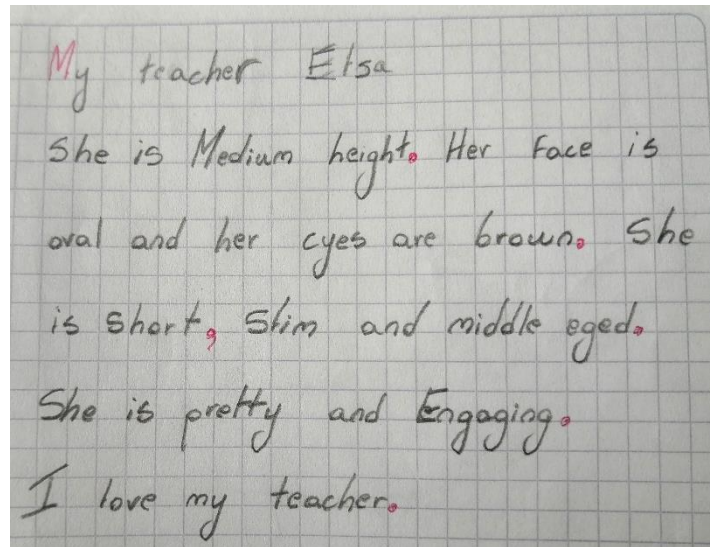 My teacher Elsa
She is Medium height. Her Face is
oval and her eyes are brown. She
is short, Slim and middle eged.
She is pretty and Engaging.
I love my teacher.